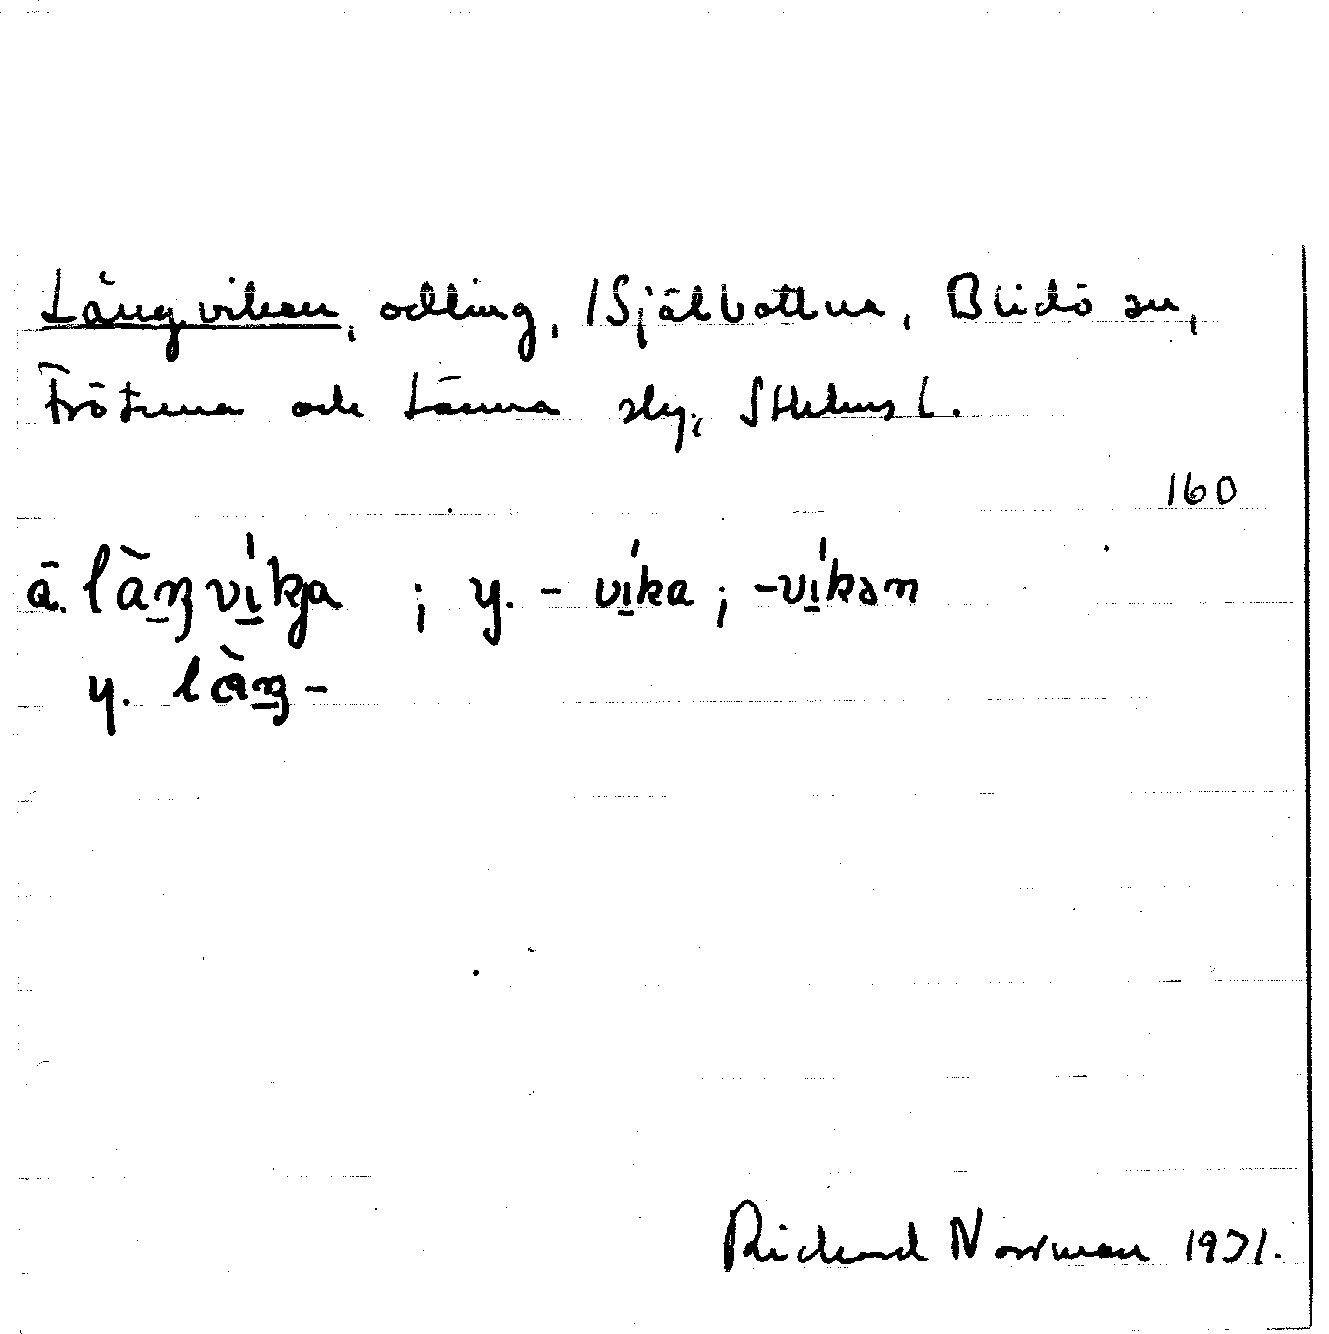 Långviken, odling, 1 Själbottna, Blidö sn,
Frötuna och Länna skg, Sthlms l.
160
ä. làŋvíkja ; y. - víka ; -víkən
y. làŋ-
Rickard Norrman 1931.